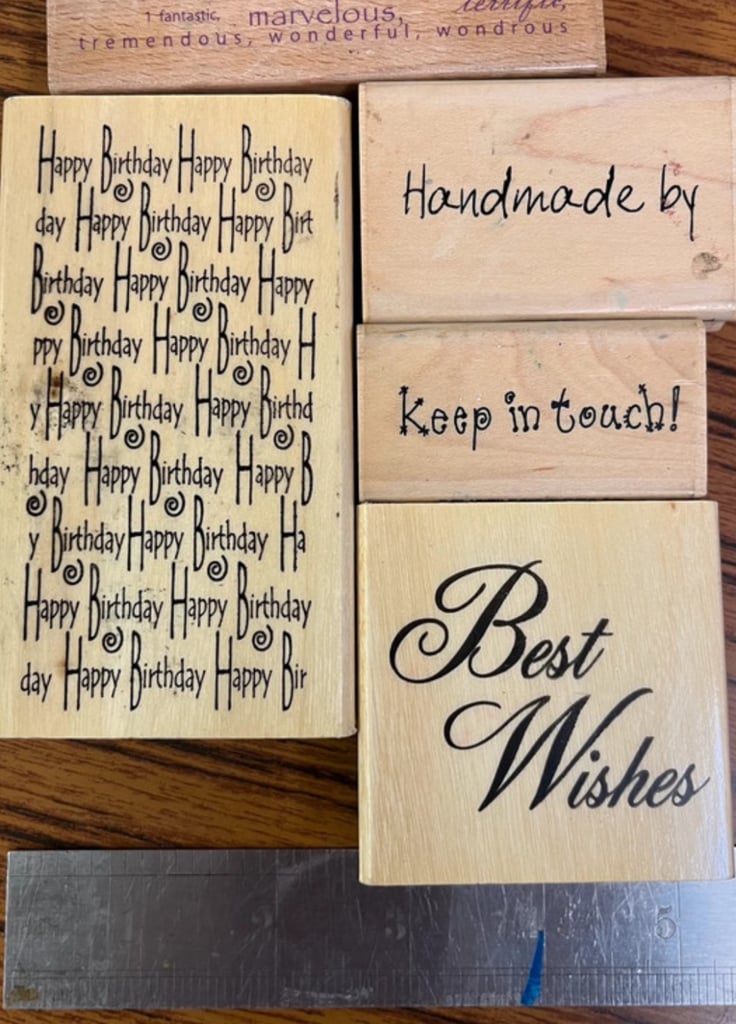 1 fantastic, marvelous, terrific,
tremendous, wonderful, wondrous
Happy Birthday Happy Birthday
day Happy Birthday Happy Birt
Birthday Happy Birthday Happy
ppy Birthday Happy Birthday H
y Happy Birthday Happy Birthd
hday Happy Birthday Happy B
y Birthday Happy Birthday Ha
Happy Birthday Happy Birthday
day Happy Birthday Happy Bir
Handmade by
Keep in touch!
Best
Wishes
5